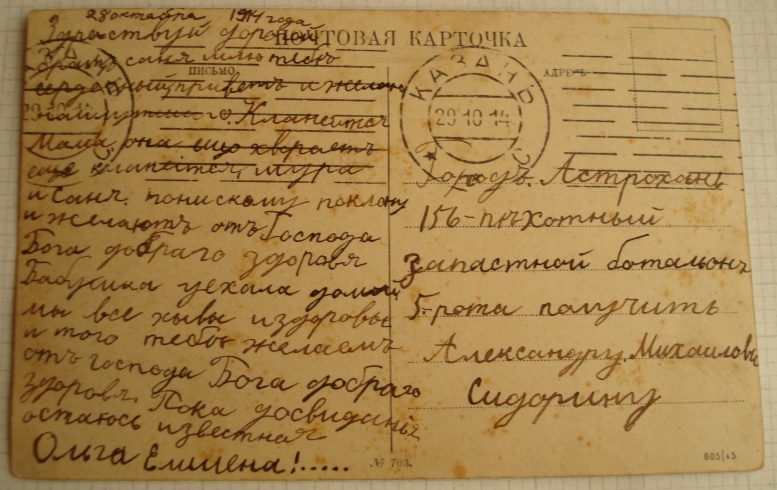 28 октабра 1914 года
Здраствуй дорогой
братъ саня шлю тебѣ
сердешный приветъ и желаю
Кланеится
Мама она ещо хвраетъ
еще кланеится, Мура
и Саня. понискому поклону
и желаютъ отъ Господа
Бога добраго здоровя
Бабушка уехала домой
мы все живы издоровы
и того тебѣ желаемъ
отъ господа Бога добраго
здоровя. Пока досвиданья
остаюсь известная
Ольга Емшена!.....
ПОЧТОВАЯ КАРТОЧКА
ПИСЬМО
АДРЕСЪ
КАЗАНЬ
29 10 14
Городъ. Астрохань
156-пѣхотный
Запастной баталионъ
5-рота получить
Александру Михаилову
Сидорину
№ 703.
605/45